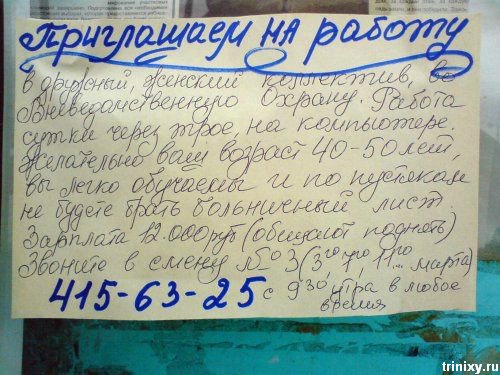 Приглашаем на работу
в дружный, женский коллектив, во
Вневедомственную Охрану. Работа
сутки через трое, на компьютере.
Желательно ваш возраст 40-50 лет,
вы легко обучаемы и по пустякам
не будете брать больничный лист.
Зарплата 12.000 руб (обещают поднять)
Звоните в смену №3 (3го 7го 11го... марта)
415-63-25 с 9 30 утра в любое
время
trinixy.ru